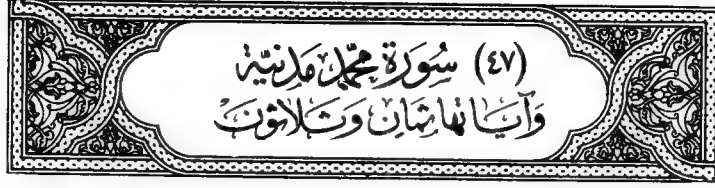 (٤٧) سُورَةُ مُحَمَّدٍ مَدَنِيَّة
وَآيَاتُهَا ثَمَانٍ وَثَلَاثُونَ